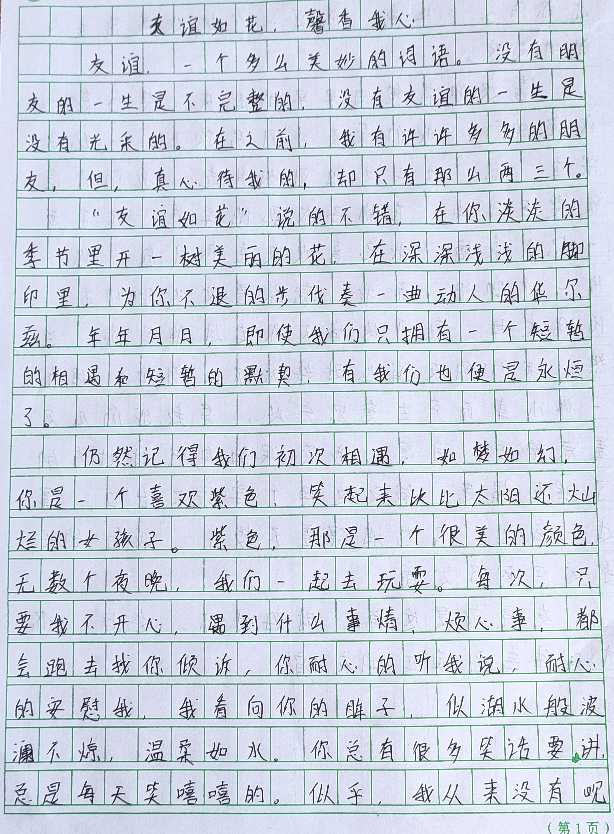 友谊如花，馨香我心
友谊，一个多么美妙的词语。没有朋
友的一生是不完整的，没有友谊的一生是
没有光采的。在之前，我有许许多多的朋
友，但，真心待我的，却只有那么两三个。
“友谊如花”说的不错，在你淡淡的
季节里开一树美丽的花，在深深浅浅的脚
印里，为你不退的步伐奏一曲动人的华尔
兹。年年月日，即使我们只拥有一个短暂
的相遇和短暂的默契，有我们也便是永恒
了。
仍然记得我们初次相遇，如梦如幻，
你是一个喜欢紫色，笑起来比比太阳还灿
烂的女孩子。紫色，那是一个很美的颜色，
无数个夜晚，我们一起去玩耍。每次，只
要我不开心，遇到什么事情，烦心事，都
会跑去找你倾诉，你耐心的听我说，耐心
的安慰我，我看向你的眸子，似湖水般波
澜不惊，温柔如水。你总有很多笑话要讲，
总是每天笑嘻嘻的。似乎，我从来没有
（第1页）